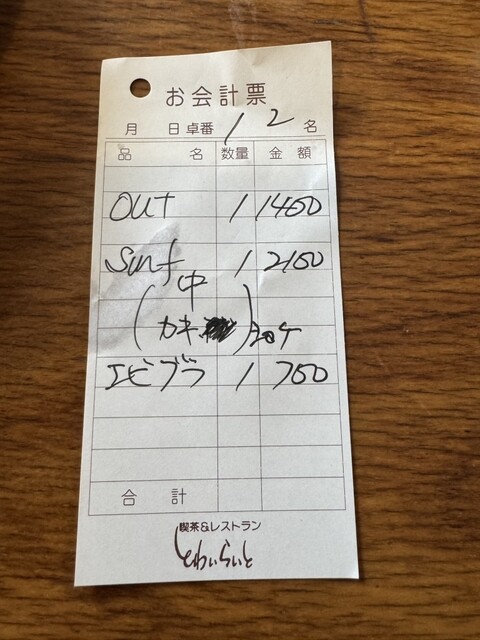 お会計票
月 日 卓番 1 2 名
品 名 数量 金額
Out 1 1400
Surf 1 2100
(中
カキ)
エビフラ 1 700
合 計
喫茶&レストラン
とわいらいと